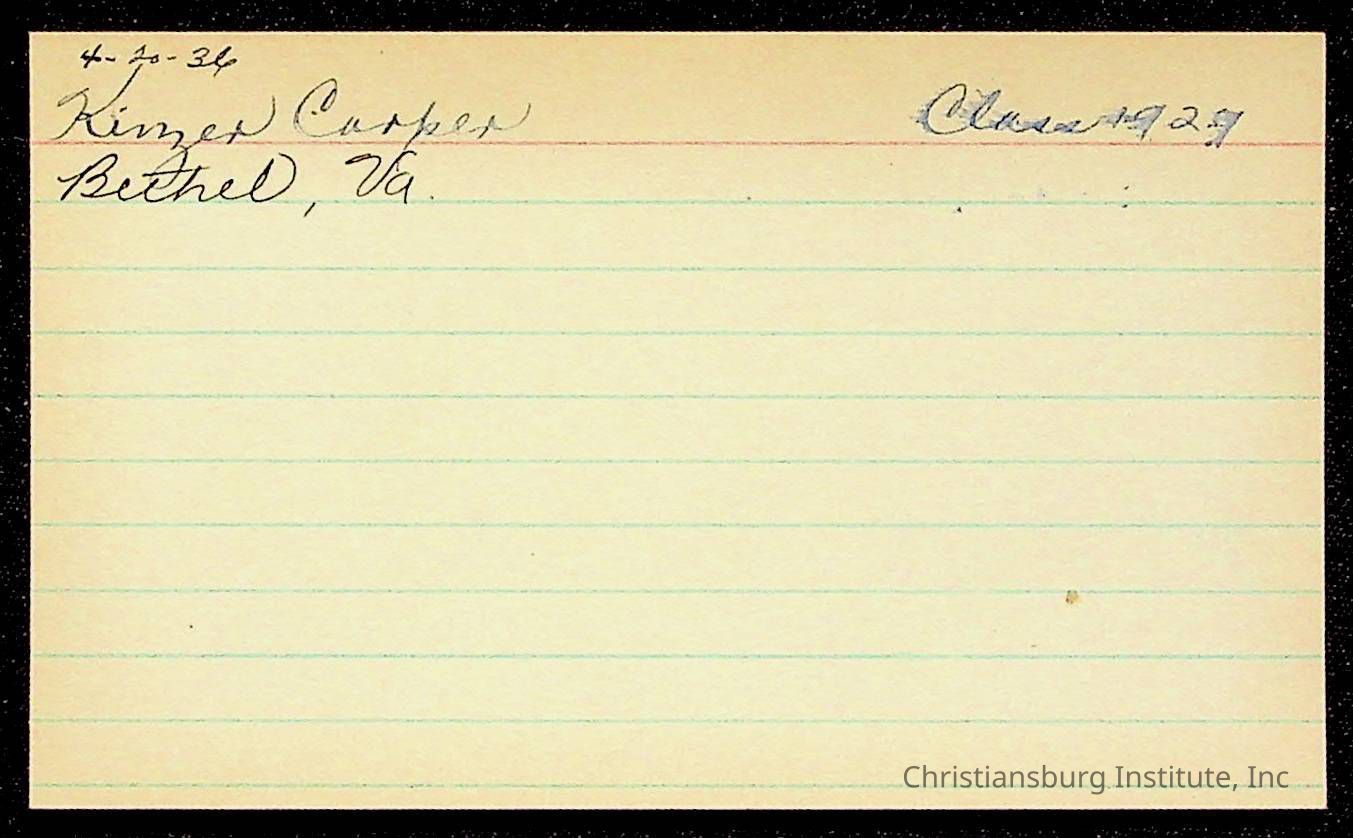 4-20-36
Kinzer Carper Class 1929
Bethel, Va.
Christiansburg Institute, Inc